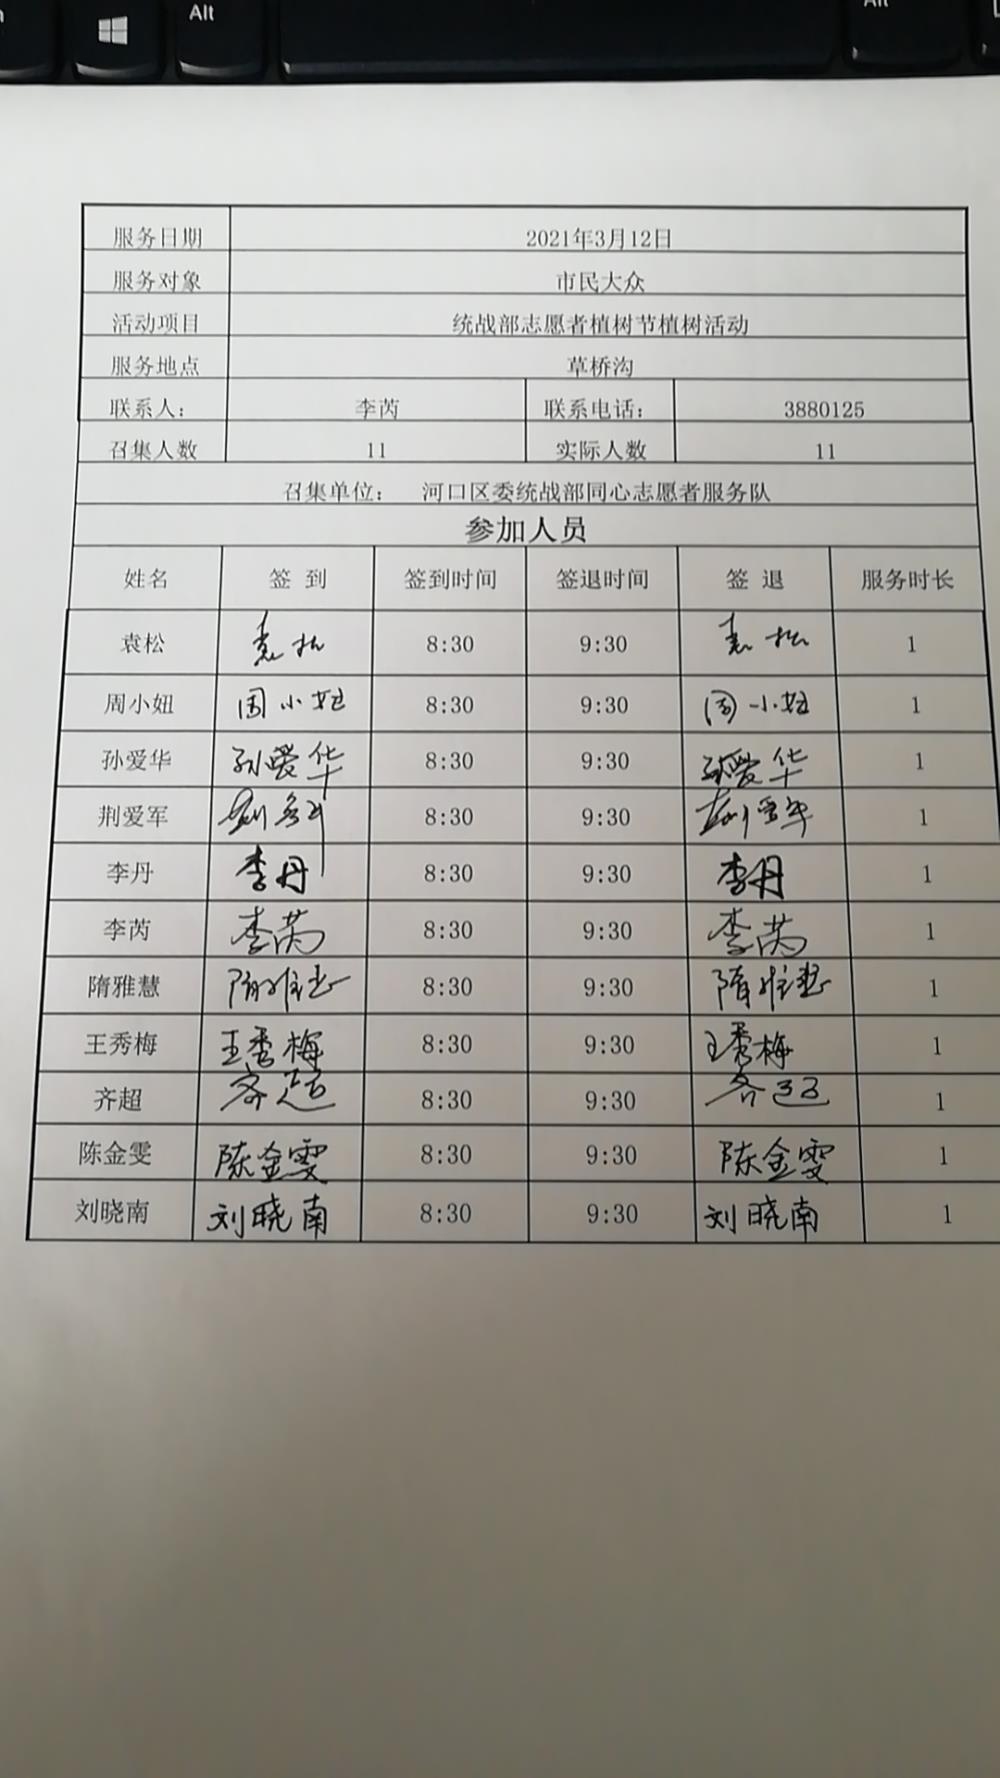 Alt
Alt
服务日期 2021年3月12日
服务对象 市民大众
活动项目 统战部志愿者植树节植树活动
服务地点 草桥沟
联系人： 李芮 联系电话： 3880125
召集人数 11 实际人数 11
召集单位： 河口区委统战部同心志愿者服务队
参加人员
姓名 签 到 签到时间 签退时间 签 退 服务时长
袁松 袁松 8:30 9:30 袁松 1
周小妞 周小妞 8:30 9:30 周小妞 1
孙爱华 孙爱华 8:30 9:30 孙爱华 1
荆爱军 荆爱军 8:30 9:30 荆爱军 1
李丹 李丹 8:30 9:30 李丹 1
李芮 李芮 8:30 9:30 李芮 1
隋雅慧 隋雅慧 8:30 9:30 隋雅慧 1
王秀梅 王秀梅 8:30 9:30 王秀梅 1
齐超 齐超 8:30 9:30 齐超 1
陈金雯 陈金雯 8:30 9:30 陈金雯 1
刘晓南 刘晓南 8:30 9:30 刘晓南 1